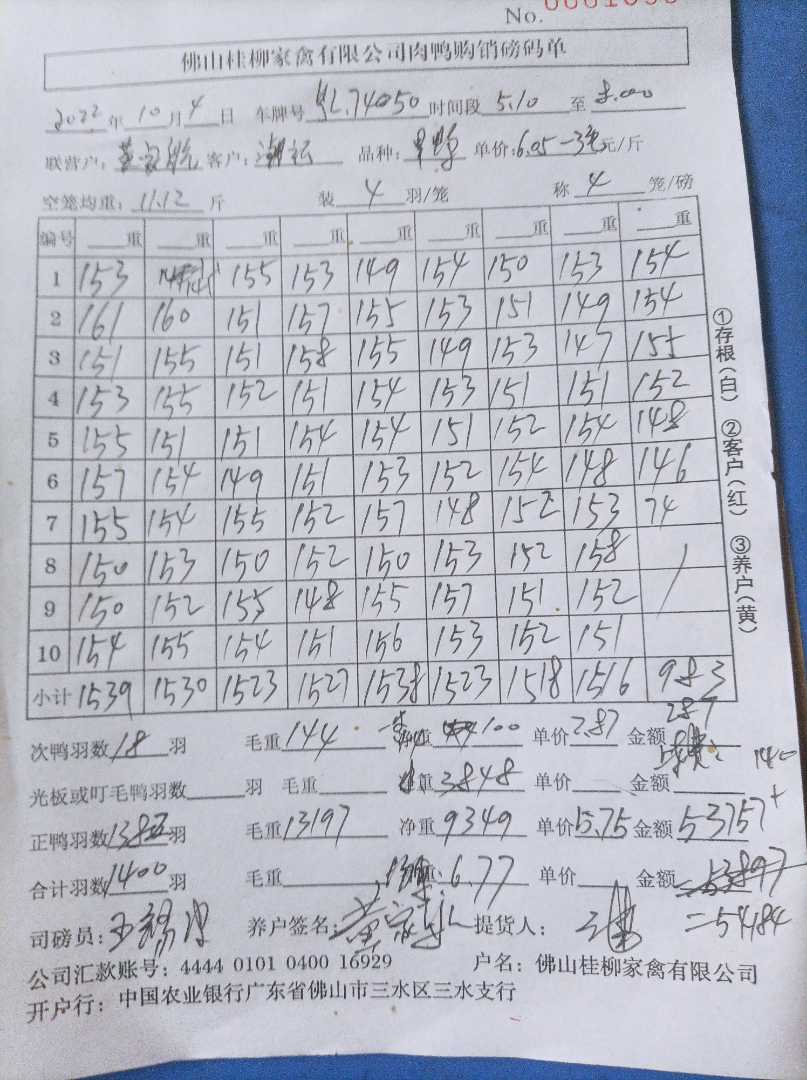 No. 0001095
佛山桂柳家禽有限公司肉鸭购销磅码单
2022 年 10 月 4 日 车牌号 74050 时间段 5.10 至 8.000
联营户: 黄 客户: 潮 品种: 单价: 6.05 元/斤
空笼均重: 11.12 斤 装 4 羽/笼 称 4 笼/磅
编号 重 重 重 重 重 重 重 重 重
1 153 145 155 153 149 154 150 153 154
2 161 160 151 157 155 153 151 149 154
3 151 155 151 158 155 149 153 147 155
4 153 155 152 151 154 153 151 151 152
5 155 151 151 154 154 151 152 154 148
6 157 154 149 151 153 152 154 148 146
7 155 154 155 152 157 148 152 153 74
8 150 153 150 152 150 153 152 158
9 150 152 155 148 155 157 151 152
10 154 155 154 151 156 153 152 151
小计 1539 1530 1523 1527 1538 1523 1518 1516 983
①存根(白) ②客户(红) ③养户(黄)
次鸭羽数 18 羽 毛重 144 重 100 单价 2.87 金额 287
光板或叮毛鸭羽数 羽 毛重 净重 3848 单价 金额 140
正鸭羽数 羽 毛重 13197 净重 9349 单价 5.75 金额 53757+
合计羽数 1400 羽 毛重 6.77 单价 金额 53897
=54184
司磅员: 王 养户签名: 黄 提货人:
公司汇款账号: 4444 0101 0400 16929 户名: 佛山桂柳家禽有限公司
开户行: 中国农业银行广东省佛山市三水区三水支行